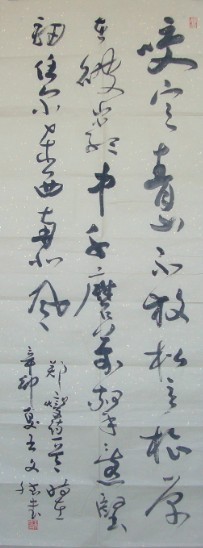 咬定青山不放松立根原
在破岩中千磨萬擊還堅
劲任尔东西南北风
郑燮诗一首 时在
辛卯夏